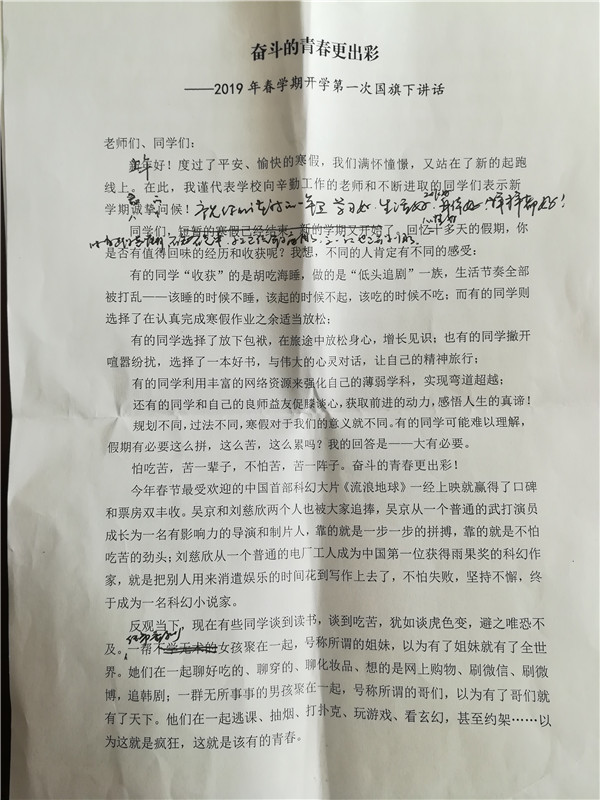 奋斗的青春更出彩
——2019 年春学期开学第一次国旗下讲话
老师们、同学们：
好！度过了平安、愉快的寒假，我们满怀憧憬，又站在了新的起跑
线上。在此，我谨代表学校向辛勤工作的老师和不断进取的同学们表示新
学期诚挚问候！
同学们，短暂的寒假已经结束，新的学期又开始了。回忆十多天的假期，你
是否有值得回味的经历和收获呢？我想，不同的人肯定有不同的感受：
有的同学“收获”的是胡吃海睡，做的是“低头追剧”一族，生活节奏全部
被打乱——该睡的时候不睡，该起的时候不起，该吃的时候不吃；而有的同学则
选择了在认真完成寒假作业之余适当放松；
有的同学选择了放下包袱，在旅途中放松身心，增长见识；也有的同学撇开
喧嚣纷扰，选择了一本好书，与伟大的心灵对话，让自己的精神旅行；
有的同学利用丰富的网络资源来强化自己的薄弱学科，实现弯道超越；
还有的同学和自己的良师益友促膝谈心，获取前进的动力，感悟人生的真谛！
规划不同，过法不同，寒假对于我们的意义就不同。有的同学可能难以理解，
假期有必要这么拼，这么苦，这么累吗？我的回答是——大有必要。
怕吃苦，苦一辈子，不怕苦，苦一阵子。奋斗的青春更出彩！
今年春节最受欢迎的中国首部科幻大片《流浪地球》一经上映就赢得了口碑
和票房双丰收。吴京和刘慈欣两个人也被大家追捧，吴京从一个普通的武打演员
成长为一名有影响力的导演和制片人，靠的就是一步一步的拼搏，靠的就是不怕
吃苦的劲头；刘慈欣从一个普通的电厂工人成为中国第一位获得雨果奖的科幻作
家，就是把别人用来消遣娱乐的时间花到写作上去了，不怕失败，坚持不懈，终
于成为一名科幻小说家。
反观当下，现在有些同学谈到读书，谈到吃苦，犹如谈虎色变，避之唯恐不
及。一帮不学无术的女孩聚在一起，号称所谓的姐妹，以为有了姐妹就有了全世
界。她们在一起聊好吃的、聊穿的、聊化妆品、想的是网上购物、刷微信、刷微
博，追韩剧；一群无所事事的男孩聚在一起，号称所谓的哥们，以为有了哥们就
有了天下。他们在一起逃课、抽烟、打扑克、玩游戏、看玄幻，甚至约架……以
为这就是疯狂，这就是该有的青春。